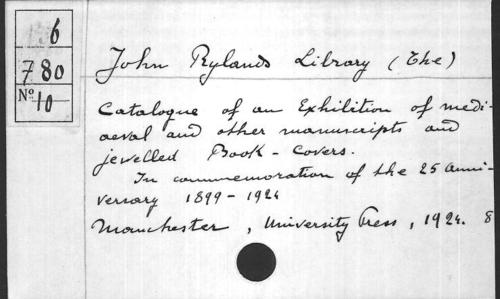 6
780
No 10
John Rylands Library (The)
Catalogue of an Exhibition of medi-
aeval and other manuscripts and
jewelled Book-Covers.
In commemoration of the 25 anni-
versary 1899-1924
Manchester, University Press, 1924. 8